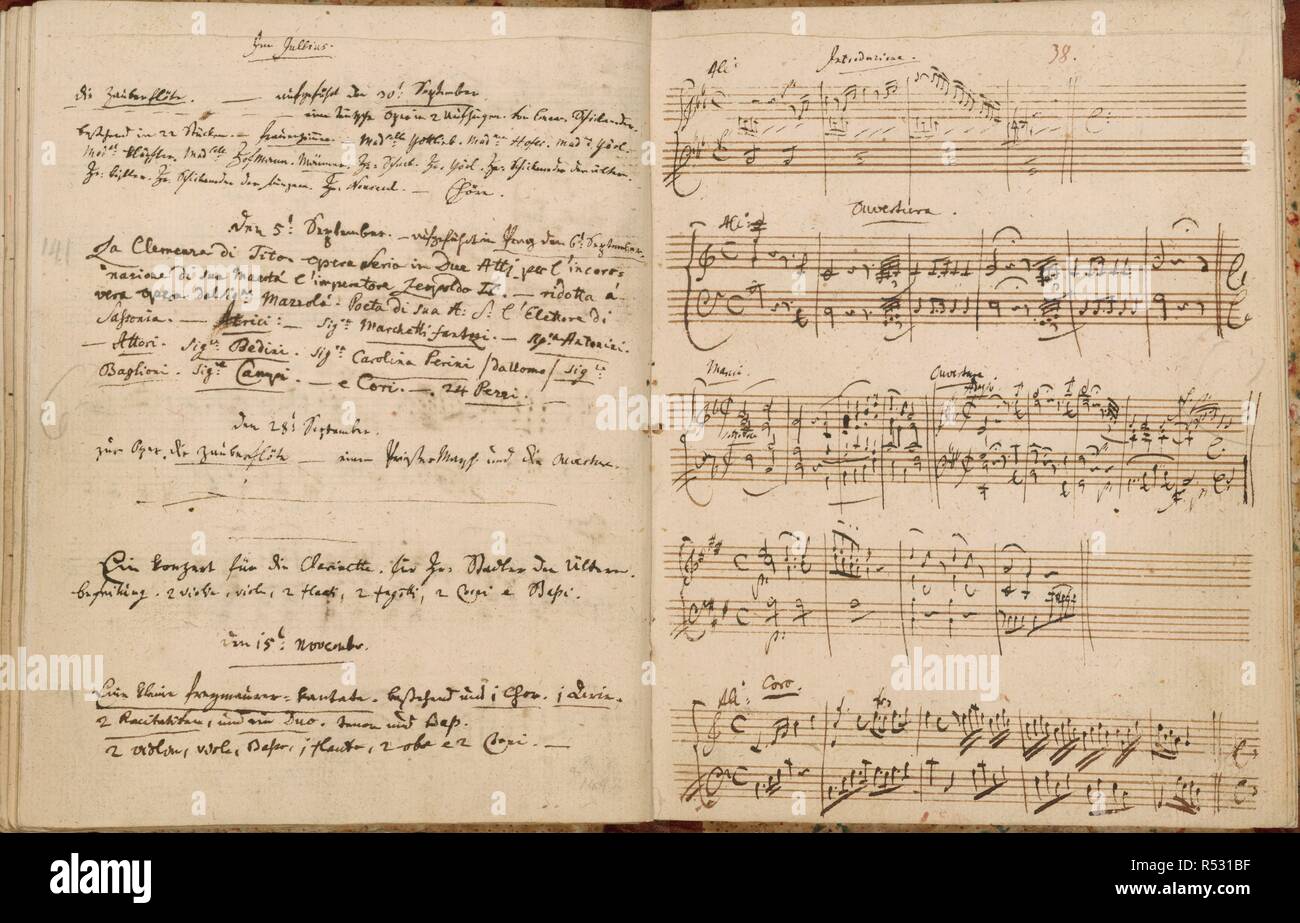 Im Jullius.
die Zauberflöte. — aufgeführt den 30t September
eine teutsche Oper in 2 Aufzügen. von Eman. Schikaneder.
bestehend in 22 Stücken. — frauenzimmer. — Mad:selle Gottlieb. Mad:me Hofer. Mad:e Görl.
Mad:e Klöpfler. Mad:selle Hofmann. Männer. Hr: Schack. Hr: Görl. Hr: Schikaneder der ältere.
Hr: Kistler. Hr: Schikaneder der Jüngere. Hr: Nouseul. — Chöre.
den 5t September. — aufgeführt in Prag den 6t September.
La Clemenza di Tito. opera Seria in Due Atti. per l'incoro-
nazione di sua Maestà l'imperatore Leopoldo II. — ridotta á
vera opera dal Sigre Mazzolá. Poeta di sua A: S: l'Elettore di
Sassonia. — Attrici: — Sigra Marchetti fantozi. — Sigra Antonini.
— Attori. Sigre Bedini. Sigra Carolina Perini / da Uomo / Sigre
Baglioni. Sigre Campi. — e Cori. — 24 Pezzi.
den 28t September.
zur Oper. die Zauberflöte — einen Priester Marsch und die Ouverture.
Ein Konzert für die Clarinette. für Hr: Stadler den ältern.
begleitung. 2 violini, viole, 2 flauti, 2 fagotti, 2 Corni e Bassi.
den 15t Novembr.
Eine kleine freymaurer-kantate. bestehend aus 1 Chor. 1 Arie.
2 Recitativen, und ein Duo. tenor und Bass.
2 violini, viole, Basso, 1 flauto, 2 oboe e 2 Corni. —
38.
Introduzione.
All:
Ouvertura.
All:
Marcia.
Ouverture
Adagio
All:
Coro.
alamy
Image ID: R531BF
www.alamy.com